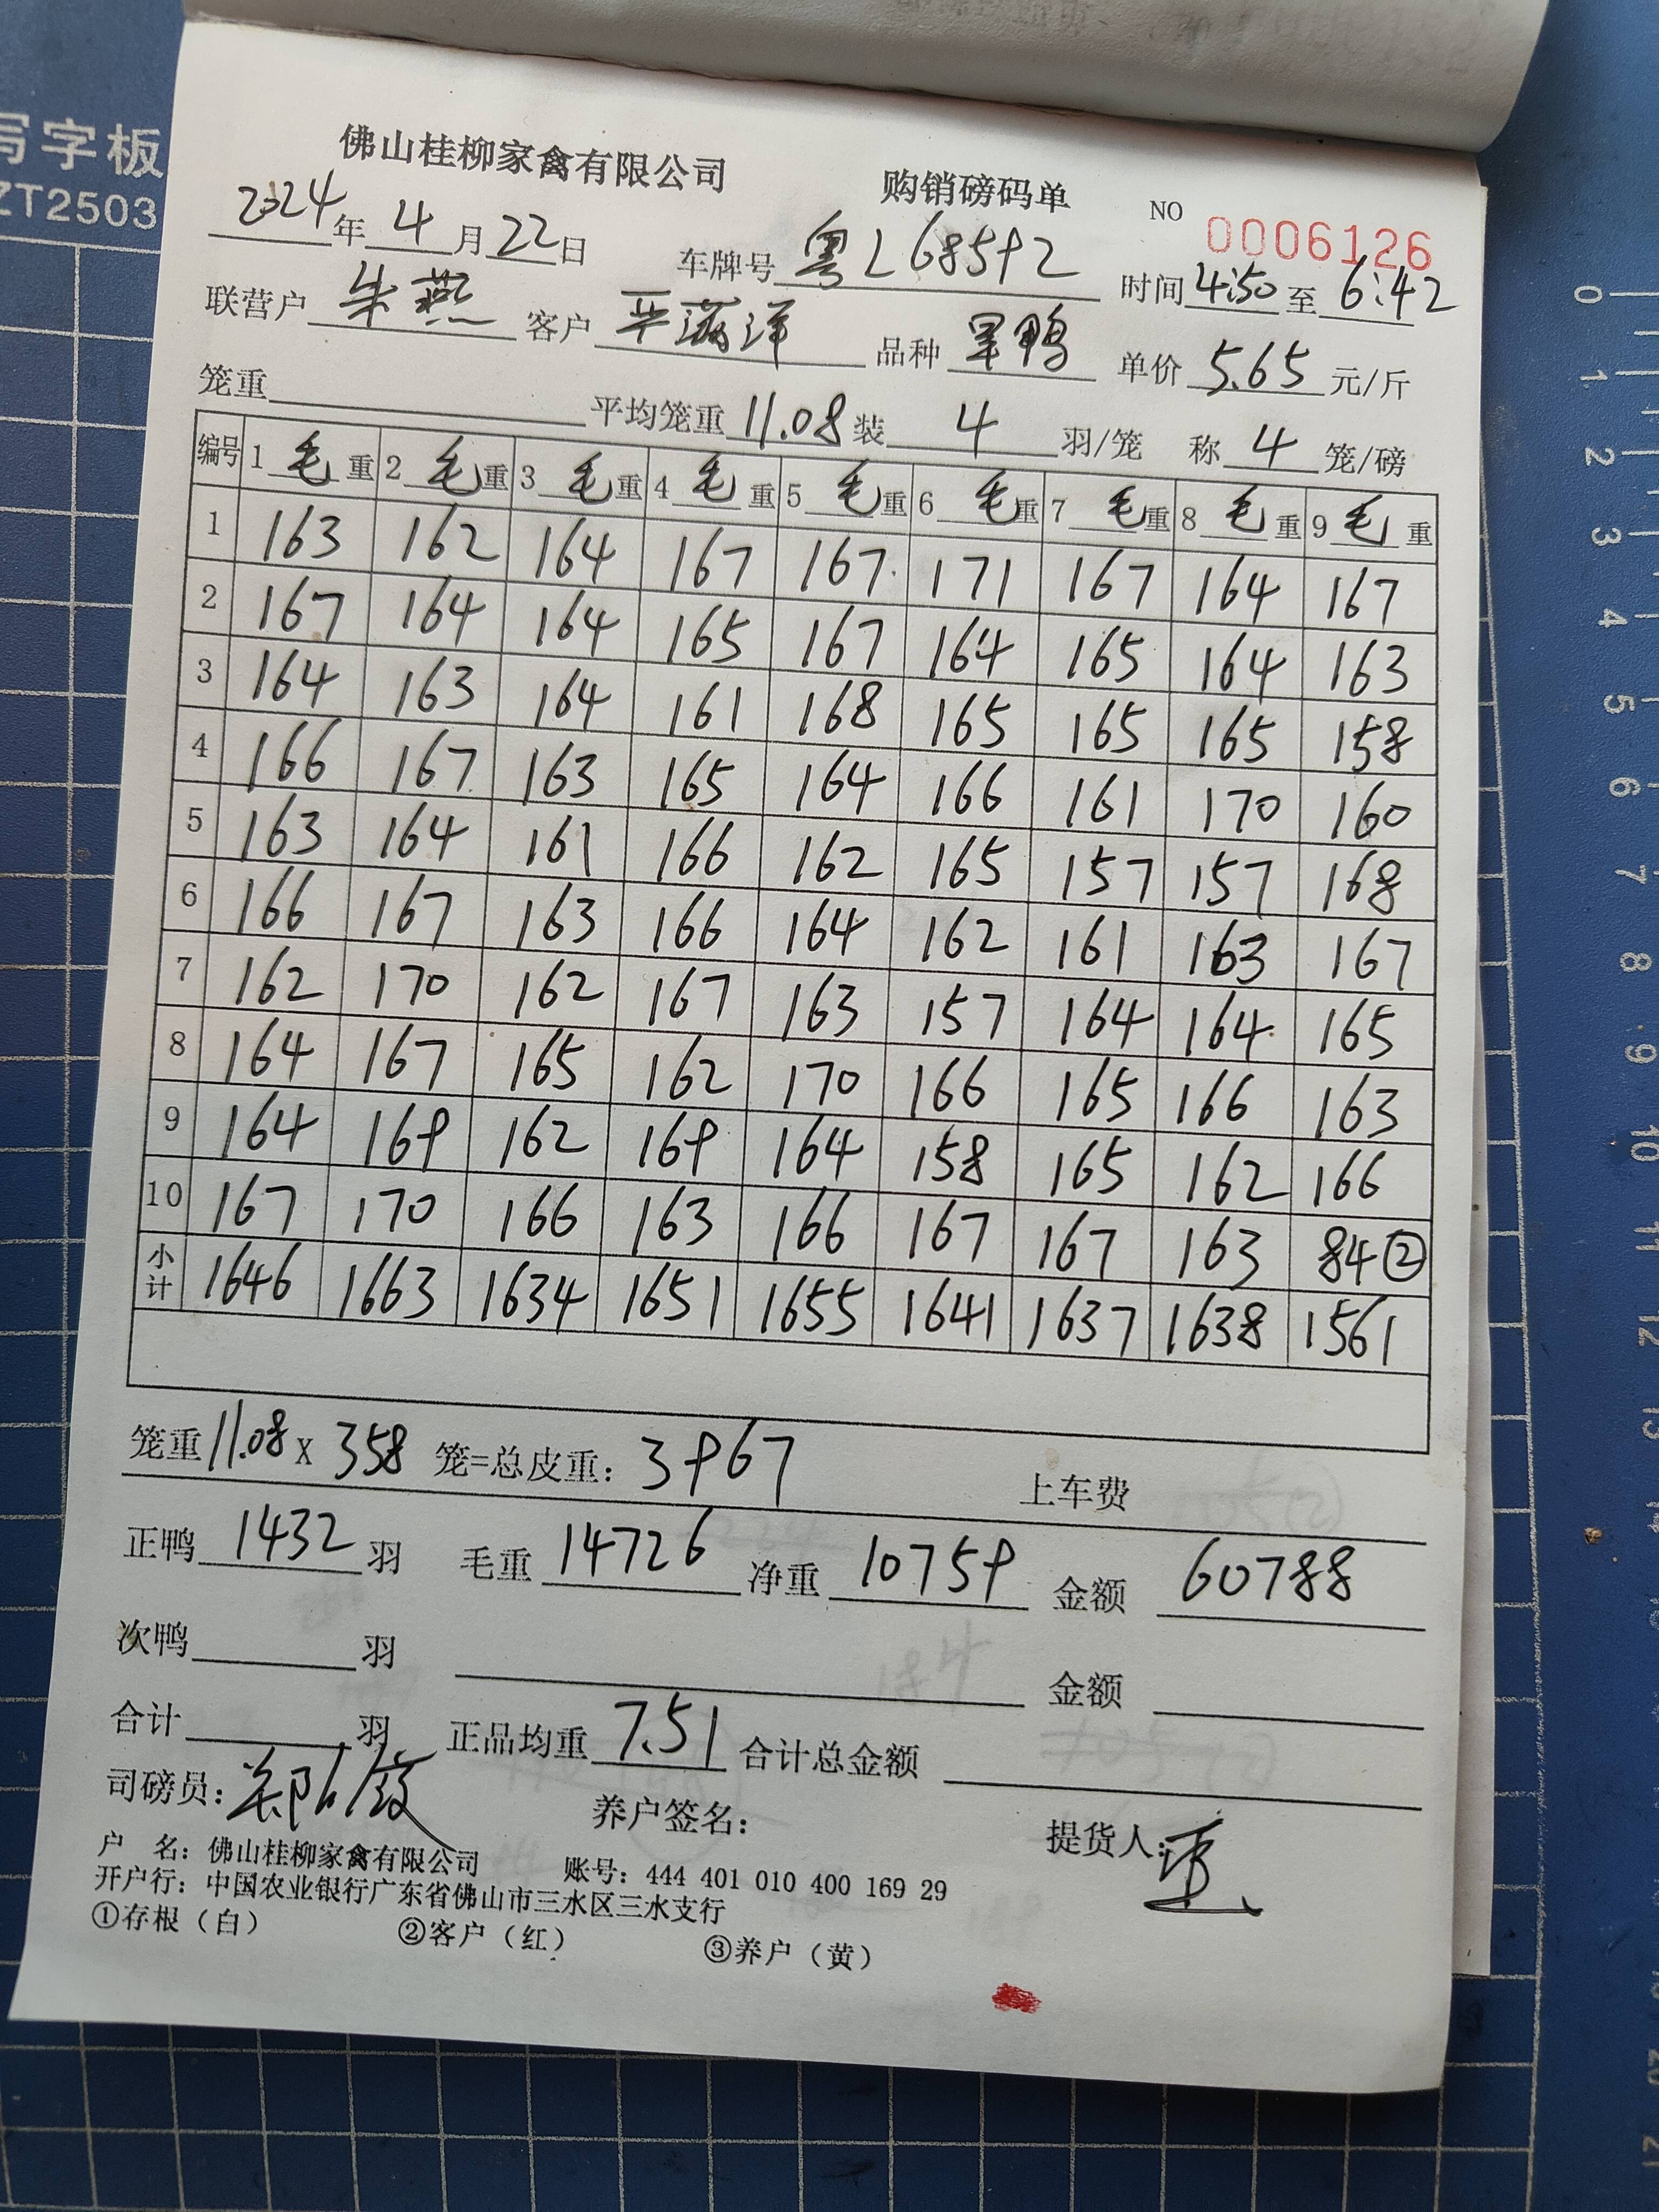 写字板
ZT2503
佛山桂柳家禽有限公司 购销磅码单 NO 0006126
2024年4月22日 车牌号 粤L68592 时间 4:50 至 6:42
联营户 朱燕 客户 品种 单价 5.65 元/斤
笼重 平均笼重 11.08 装 4 羽/笼 称 4 笼/磅
编号 1 毛重 2 毛重 3 毛重 4 毛重 5 毛重 6 毛重 7 毛重 8 毛重 9 毛重
1 163 162 164 167 167 171 167 164 167
2 167 164 164 165 167 164 165 164 163
3 164 163 164 161 168 165 165 165 158
4 166 167 163 165 164 166 161 170 160
5 163 164 161 166 162 165 157 157 168
6 166 167 163 166 164 162 161 163 167
7 162 170 162 167 163 157 164 164 165
8 164 167 165 162 170 166 165 166 163
9 164 169 162 169 164 158 165 162 166
10 167 170 166 163 166 167 167 163 84②
小计 1646 1663 1634 1651 1655 1641 1637 1638 1561
笼重 11.08 X 358 笼=总皮重: 3967 上车费
正鸭 1432 羽 毛重 14726 净重 10759 金额 60788
次鸭 羽 金额
合计 羽 正品均重 7.51 合计总金额
司磅员: 养户签名: 提货人:
户 名: 佛山桂柳家禽有限公司 账号: 444 401 010 400 169 29
开户行: 中国农业银行广东省佛山市三水区三水支行
①存根(白) ②客户(红) ③养户(黄)
0
1
2
3
4
5
6
7
8
9
10
11
12
13
14